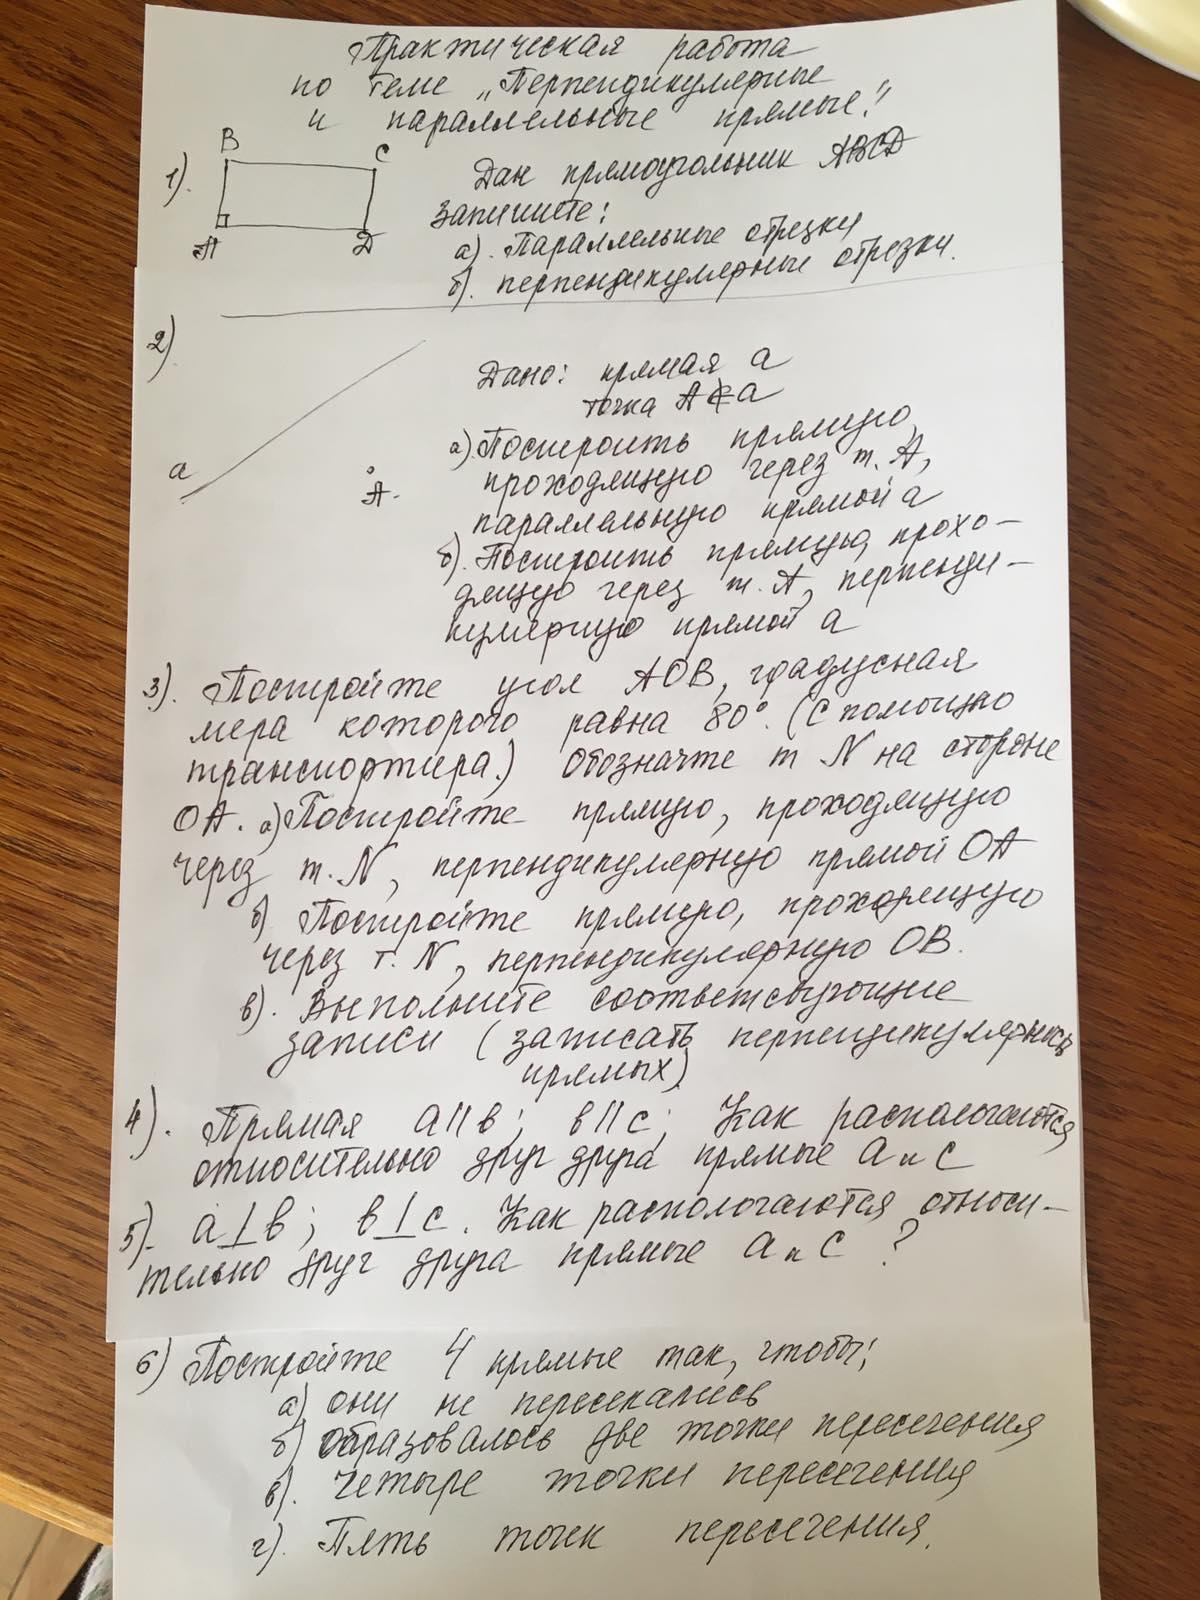 Практическая работа
по теме „Перпендикулярные
и параллельные прямые!"
B
C
1).
Дан прямоугольник ABCD
Запишите:
A
D
а). Параллельные отрезки
б). перпендикулярные отрезки.
2)
Дано: прямая a
точка A∉a
a
A
а) Построить прямую,
проходящую через т. A,
параллельную прямой a
б). Построить прямую, прохо-
дящую через т. A, перпенди-
кулярную прямой a
3). Постройте угол AOB, градусная
мера которого равна 80°. (С помощью
транспортира.) Обозначте т N на стороне
OA. а) Постройте прямую, проходящую
через т. N, перпендикулярную прямой OA
б) Постройте прямую, проходящую
через т. N, перпендикулярную OB.
в). Выполните соответствующие
записи (записать перпендикулярность
прямых)
4). Прямая a||b; b||c; Как распологаются
относительно друг друга прямые a и c
5). a⊥b; b⊥c. Как распологаются относи-
тельно друг друга прямые a и c ?
6) Постройте 4 прямые так, чтобы;
а) они не пересекались
б) образовалось две точки пересечения
в). Четыре точки пересечения
г). Пять точек пересечения.